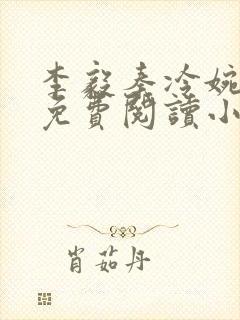 李毅秦冷婉
免費閱讀小
肖茹丹